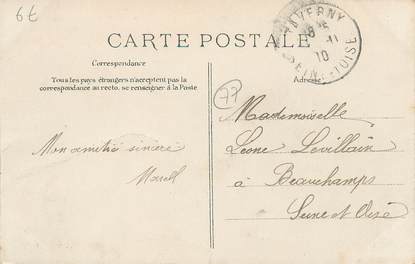 6€
TAVERNY
10
SEINE-ET-OISE
CARTE POSTALE
Correspondance
Adresse
Tous les pays étrangers n'acceptent pas la
correspondance au recto. se renseigner à la Poste
77
Mon amitié sincère
Marcell
Mademoiselle
Léone Levillain
à Beauchamps
Seine et Oise